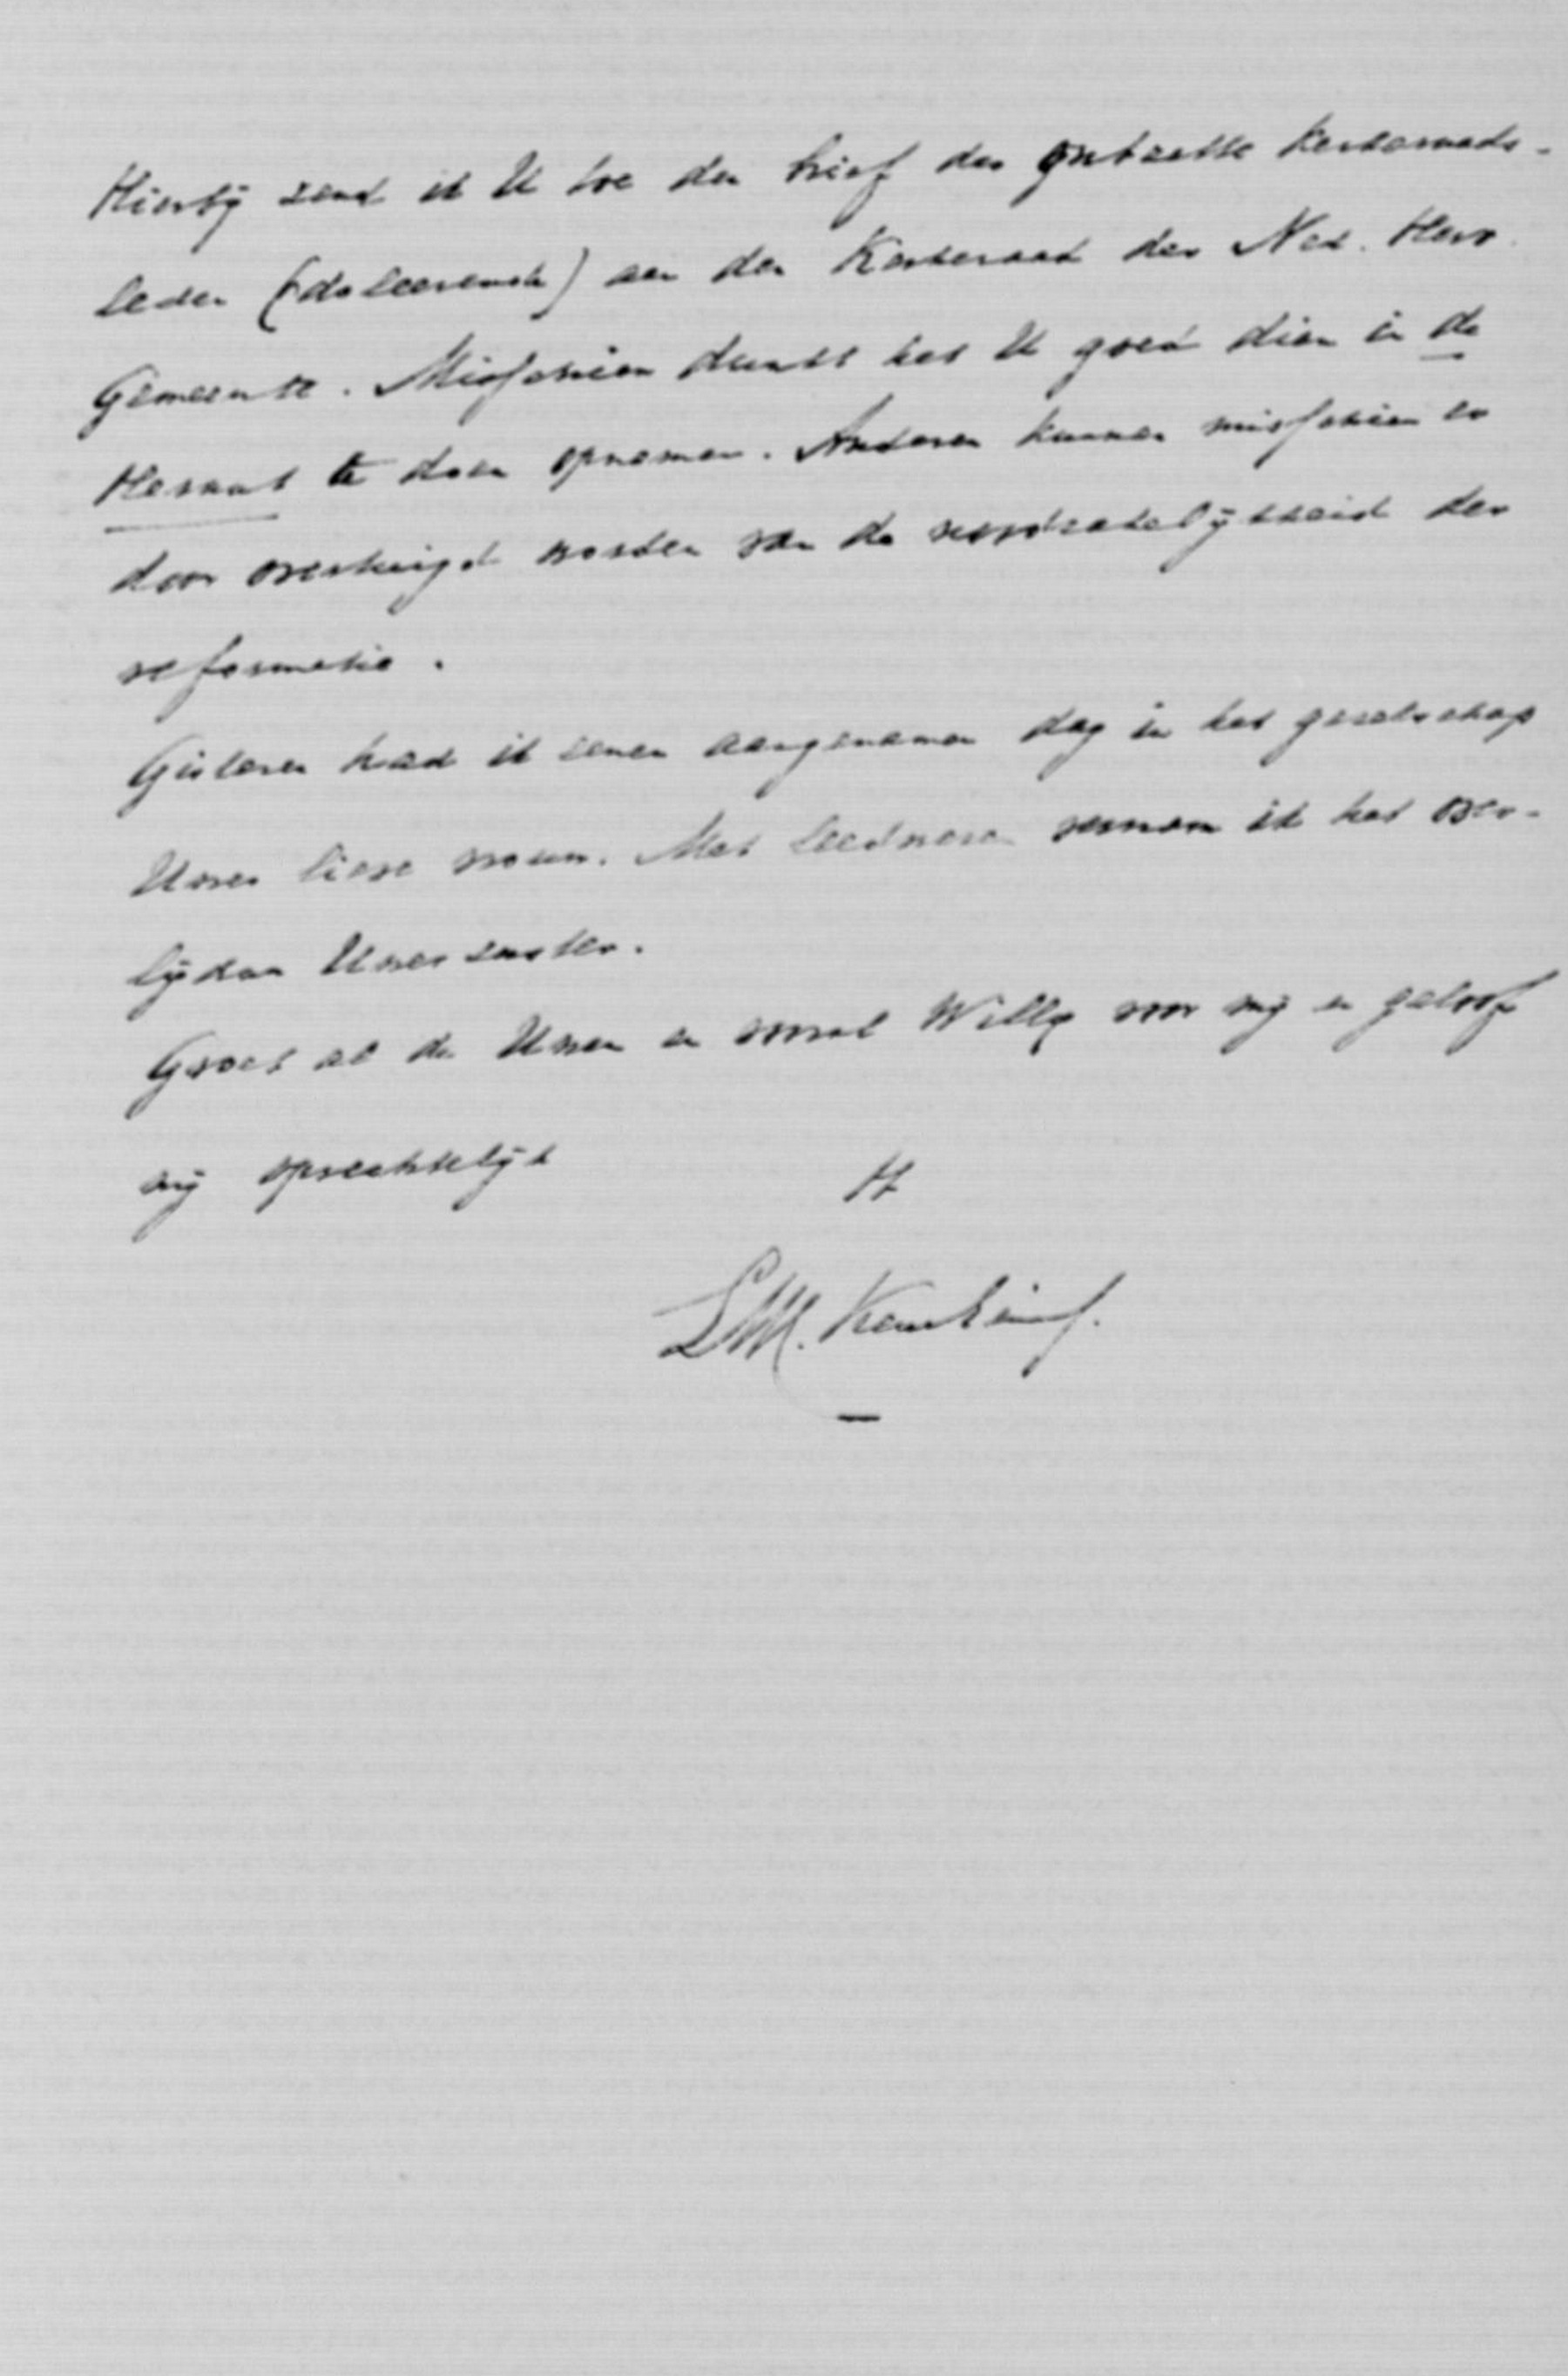 Hierbij zend ik U toe den brief der ontzette kerkeraads-
leden (doleerende) aan den Kerkeraad der Ned. Herv.
Gemeente. Misschien dunkt het U goed dien in de
Heraut te doen opnemen. Anderen kunnen misschien er
door overtuigd worden van de noodzakelijkheid der
reformatie.
Gisteren had ik eenen aangenamen dag in het gezelschap
Uwer lieve vrouw. Met leedwezen vernam ik het over-
lijden Uwer zuster.
Groet al de Uwen en vooral Willy voor mij en geloof
mij oprechtelijk
L.M.